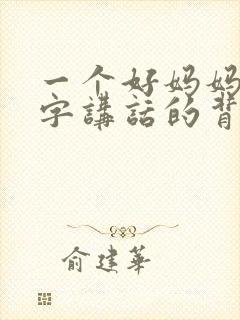 一个好妈妈
字講話的背
俞建華